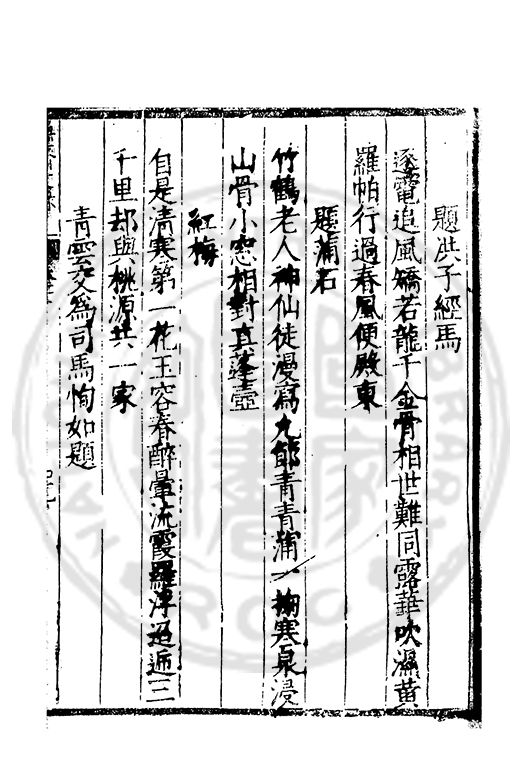 題洪子經馬
逐電追風矯若龍千金骨相世難同露華吹濕黃
羅帕行過春風便殿東
題蒲石
竹鶴老人神仙徒漫寫九節青青蒲一掬寒泉浸
山骨小窓相對真蓬壺
紅梅
自是清寒第一花玉容春醉暈流霞羅浮迢遞三
千里却與桃源共一家
青雲交為司馬恂如題